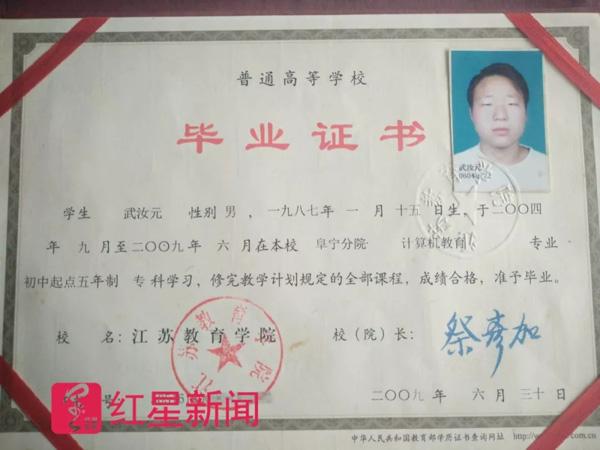 普通高等学校
毕业证书
武汝元
学生 武汝元 性别 男 ，一九八七年 一 月 十五 日生，于二〇〇四
年 九 月至二〇〇九年 六 月在本校 阜宁分院 计算机教育 专业
初中起点五年制 专 科学习，修完教学计划规定的全部课程，成绩合格，准予毕业。
校 名：江苏教育学院 校（院）长：
江苏教育学院
号
红星新闻
二〇〇九年 六 月 三十 日
中华人民共和国教育部学历证书查询网址